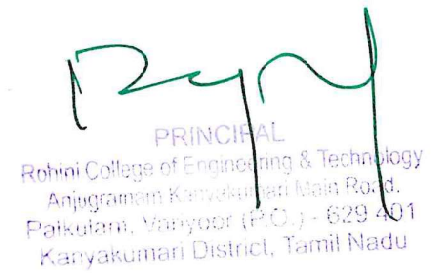 PRINCIPAL
Rohini College of Engineering & Technology
Anjugramam Kanyakumari Main Road,
Palkulam, Variyoor (P.O.) - 629 401
Kanyakumari District, Tamil Nadu